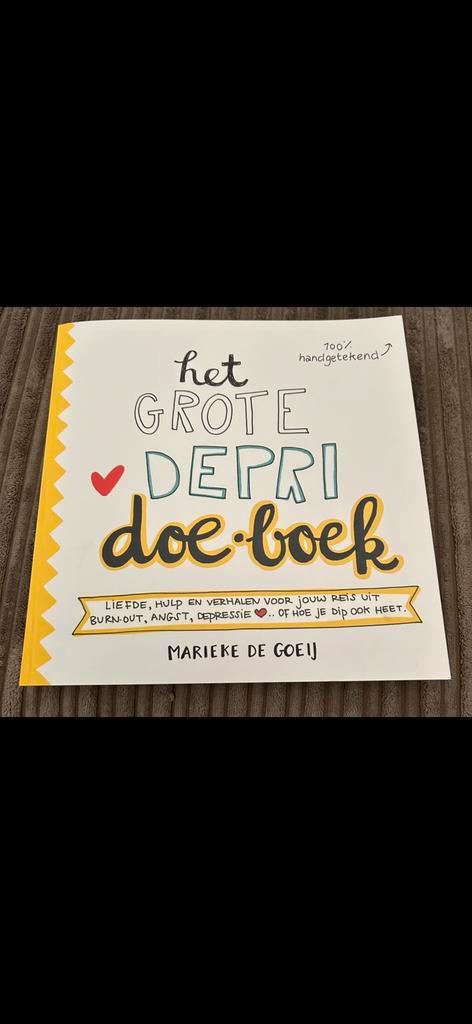 100%
handgetekend
het
GROTE
DEPRI
doe·boek
LIEFDE, HULP EN VERHALEN VOOR JOUW REIS UIT
BURN-OUT, ANGST, DEPRESSIE ♥.. OF HOE JE DIP OOK HEET.
MARIEKE DE GOEIJ